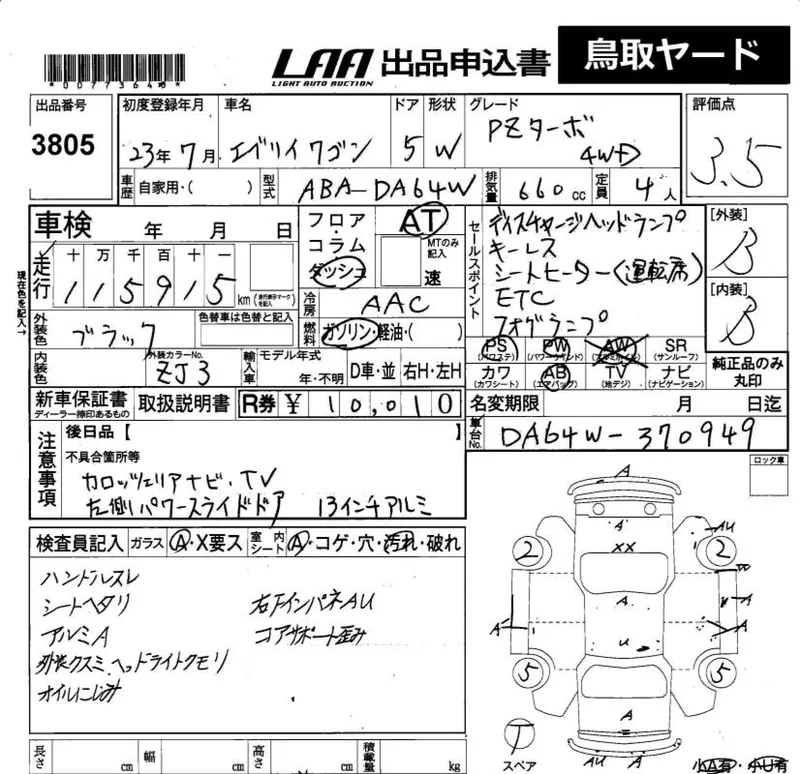 *0077364*
LAA 出品申込書 鳥取ヤード
LIGHT AUTO AUCTION
出品番号 初度登録年月 車名 ドア 形状 グレード 評価点
3805 23年7月 エブリイワゴン 5 W PZターボ 4WD 3.5
車歴 自家用・( ) 型式 ABA-DA64W 排気量 660cc 定員 4人
車検 年 月 日
フロア・コラム ダッシュ AT MTのみ記入 速
セールスポイント
ディスチャージヘッドランプ
キーレス
シートヒーター(運転席)
ETC
フォグランプ
[外装] B
[内装] B
現在色を記入→
走行 十 万 千 百 十 一
115915 km (走行表示マークを記入)
冷房 AAC
外装色 ブラック 色替車は色替と記入
燃料 ガソリン・軽油・( )
PS (パワステ) PW (パワーウインド) AW (アルミホイル) SR (サンルーフ)
内装色 外装カラーNo. ZJ3 輸入車 モデル年式 年・不明 D車・並 右H・左H
カワ (カワシート) AB (エアバッグ) TV (地デジ) ナビ (ナビゲーション)
純正品のみ丸印
新車保証書 ディーラー捺印あるもの 取扱説明書 R券 ¥ 10,010
名変期限 月 日迄
車台No. DA64W-370949
注意事項
後日品【 】
不具合箇所等
カロッツェリアナビ・TV
左側パワースライドドア 13インチアルミ
ロック車
検査員記入 ガラス A・X要ス 室内シート A・コゲ・穴・汚れ・破れ
ハンドルスレ
シートヘタリ 右下インパネAU
アルミA コアサポート歪み
外装クスミ、ヘッドライトクモリ
オイルにじみ
A
A AU
2 XX 2
W
A A
A A
U
5 5
A
T
スペア AU A 小A有・小U有
長さ cm 幅 cm 高さ cm 積載量 kg